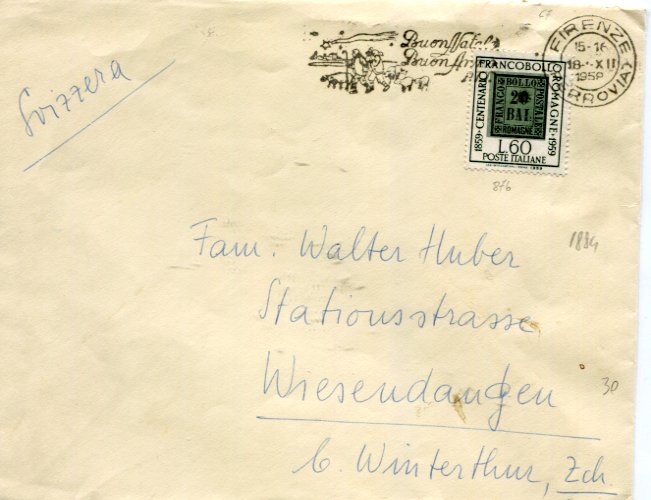 Buon Natale
Buon An
FIRENZE
15-16
18·XII
1959
FERROVIA
Svizzera
1859·CENTENARIO FRANCOBOLLO ROMAGNE·1959
FRANCO BOLLO POSTALE
20
BAI
ROMAGNE
L.60
POSTE ITALIANE
876
1884
Fam. Walter Huber
Stationsstrasse
Wiesendangen
30
b. Winterthur, Zch.